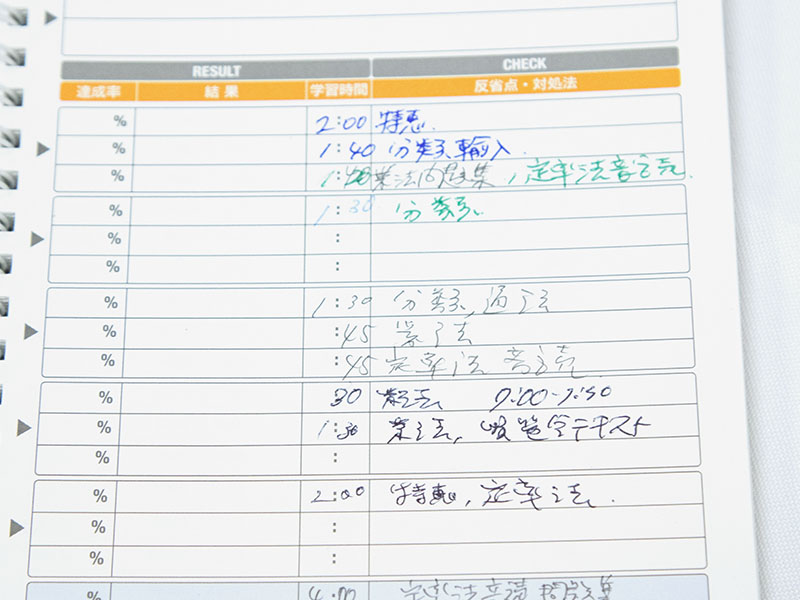 RESULT CHECK
達成率 結果 学習時間 反省点・対処法
% 2:00 特恵.
% 1:40 分類、輸入.
% 業法問題集, 定率法音読.
% 1:30 分類.
% :
% :
% 1:30 分類,
% :45 業法
% :45 定率法 音読.
% 30 業法
% 1:30 業法, テキスト
% :
% 2:00 特恵, 定率法.
% :
% :
% 4:00 定率法音読 問題集